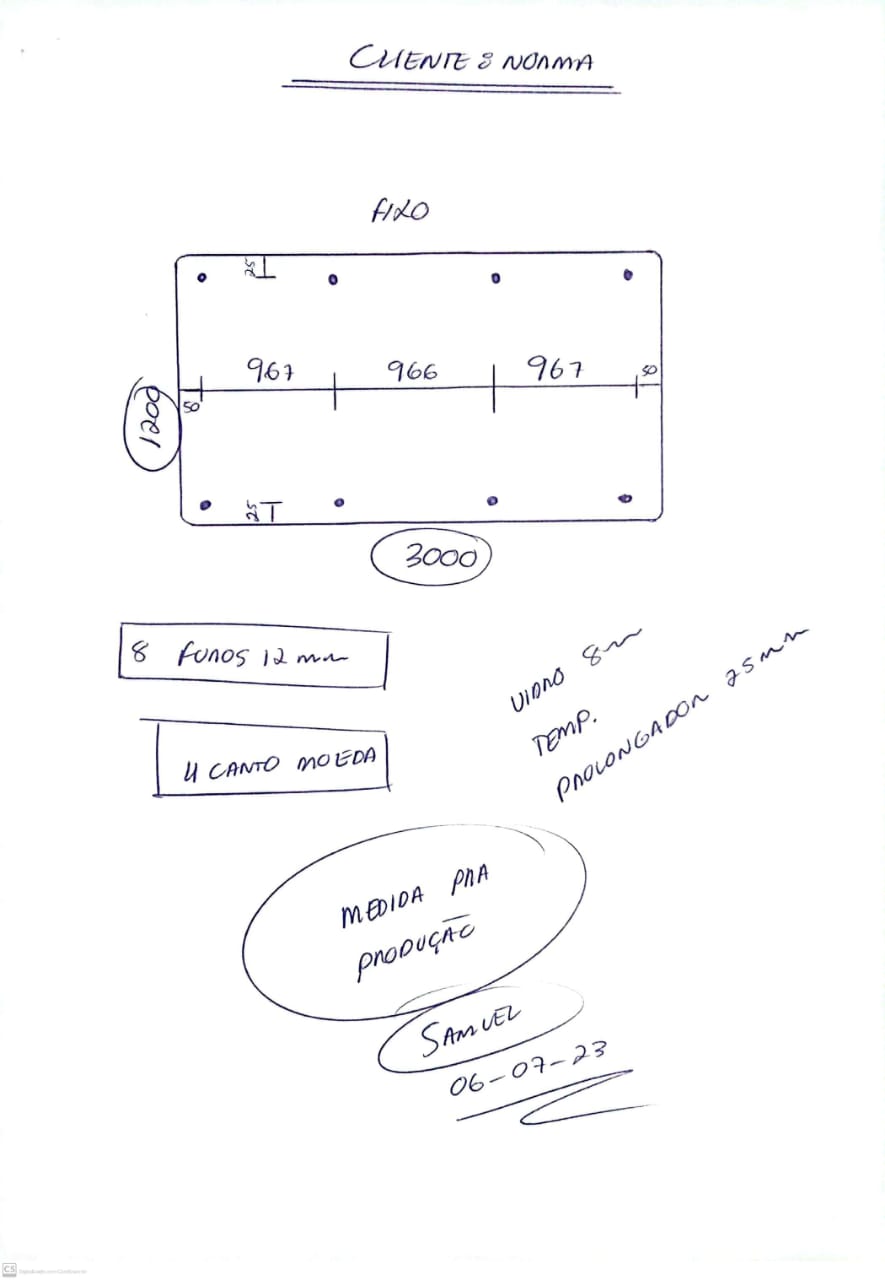 CLIENTE : NORMA
FIXO
25
967 966 967 50
50
1200
25
3000
8 FUROS 12 mm
4 CANTO MOEDA
VIDRO 8mm
TEMP.
PROLONGADOR 25mm
MEDIDA PRA
PRODUÇÃO
SAMUEL
06-07-23
CS